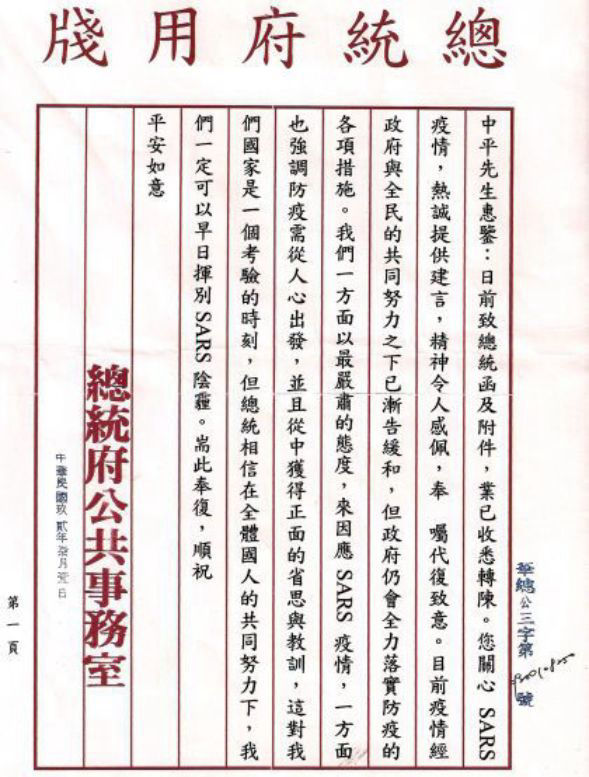 總統府用牋
華總公三字第 號
中平先生惠鑒：日前致總統函及附件，業已收悉轉陳。您關心 SARS
疫情，熱誠提供建言，精神令人感佩，奉　囑代復致意。目前疫情經
政府與全民的共同努力之下已漸告緩和，但政府仍會全力落實防疫的
各項措施。我們一方面以最嚴肅的態度，來因應 SARS 疫情，一方面
也強調防疫需從人心出發，並且從中獲得正面的省思與教訓，這對我
們國家是一個考驗的時刻，但總統相信在全體國人的共同努力下，我
們一定可以早日揮別 SARS 陰霾。耑此奉復，順祝
平安如意
總統府公共事務室
中華民國玖貳年柒月 日
第一頁